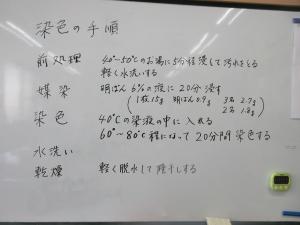 染色の手順
前処理 40~50℃のお湯に5分程浸して汚れをとる
軽く水洗いする
媒染 明ばん 6%の液に20分浸す
(1枚15g 明ばん0.9g 3名 2.7g
2名 1.8g)
染色 40℃の染液の中に入れる
60°~80℃程になって20分間染色する
水洗い
乾燥 軽く脱水して陰干しする